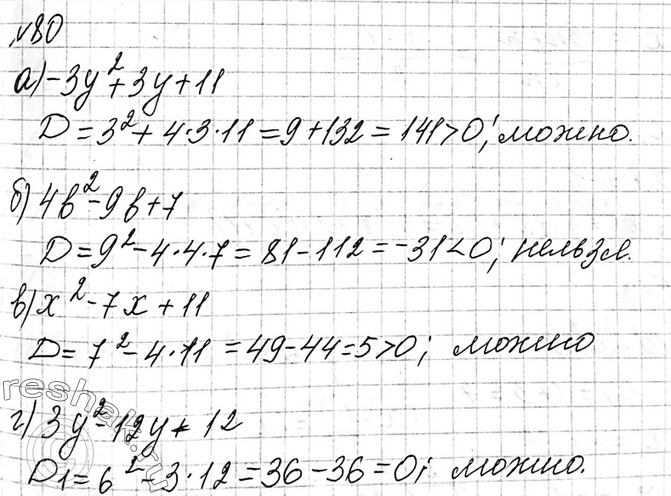 №80
а) -3y²+3y+11
D = 3²+4·3·11 = 9+132 = 141>0; можно.
б) 4b²-9b+7
D = 9²-4·4·7 = 81-112 = -31<0; нельзя.
в) x²-7x+11
D = 7²-4·11 = 49-44 = 5>0; можно
reshak.ru
г) 3y²-12y+12
D₁ = 6²-3·12 = 36-36 = 0; можно.